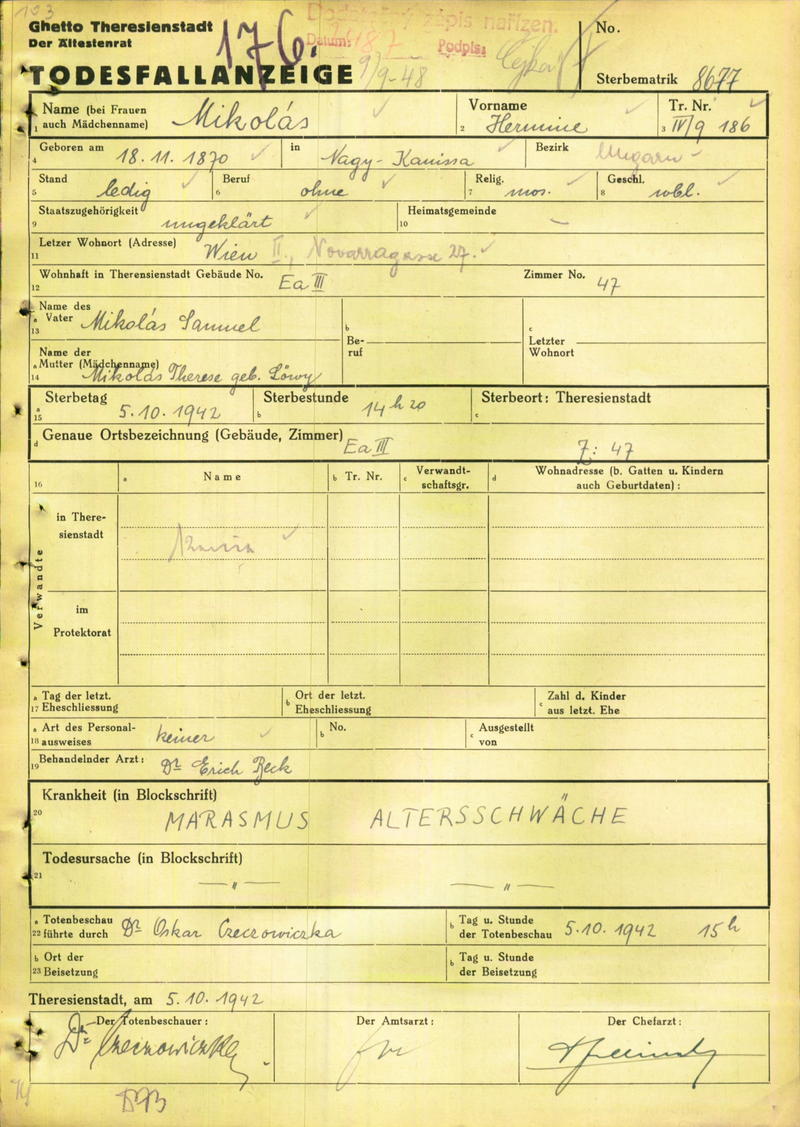 103
Ghetto Theresienstadt
Der Ältestenrat
176.
Dodatečný zápis nařízen.
Datum:
Podpis:
9/9-48
No.
TODESFALLANZEIGE
Sterbematrik 8677
Name (bei Frauen
1 auch Mädchenname) Mikolás
Vorname
2 Hermine
Tr. Nr.
3 IV/9 186
Geboren am
4 18.11.1870
in Nagy-Kanissa
Bezirk Ungarn
Stand
5 ledig
Beruf
6 ohne
Relig.
7 mos.
Geschl.
8 wbl.
Staatszugehörigkeit
9 ungeklärt
Heimatsgemeinde
10 —
Letzer Wohnort (Adresse)
11 Wien II., Novarragasse 27.
Wohnhaft in Therensienstadt Gebäude No.
12 Ea III
Zimmer No. 47
Name des
a Vater
13 Mikolás Samuel
b Be-
ruf
c Letzter
Wohnort
Name der
a Mutter (Mädchenname)
14 Mikolás Therese geb. Löwy
a Sterbetag
15 5.10.1942
Sterbestunde
b 14 h 20
Sterbeort: Theresienstadt
c
d Genaue Ortsbezeichnung (Gebäude, Zimmer) Ea III Z: 47
16
a Name
b Tr. Nr.
c Verwandt-
schaftsgr.
d Wohnadresse (b. Gatten u. Kindern
auch Geburtdaten) :
Verwandte
in There-
sienstadt
im
Protektorat
a Tag der letzt.
17 Eheschliessung
b Ort der letzt.
Eheschliessung
c Zahl d. Kinder
aus letzt. Ehe
a Art des Personal-
18 ausweises keiner
b No.
c Ausgestellt
von
Behandelnder Arzt:
19 Dr Erich Reck
Krankheit (in Blockschrift)
20 MARASMUS ALTERSSCHWÄCHE
Todesursache (in Blockschrift)
21 —"— —"—
a Totenbeschau
22 führte durch Dr Oskar Czeczowiczka
b Tag u. Stunde
der Totenbeschau 5.10.1942 15 h
b Ort der
23 Beisetzung
b Tag u. Stunde
der Beisetzung
Theresienstadt, am 5.10.1942
Der Totenbeschauer:
Dr Czeczowiczka
Der Amtsarzt:
Der Chefarzt: